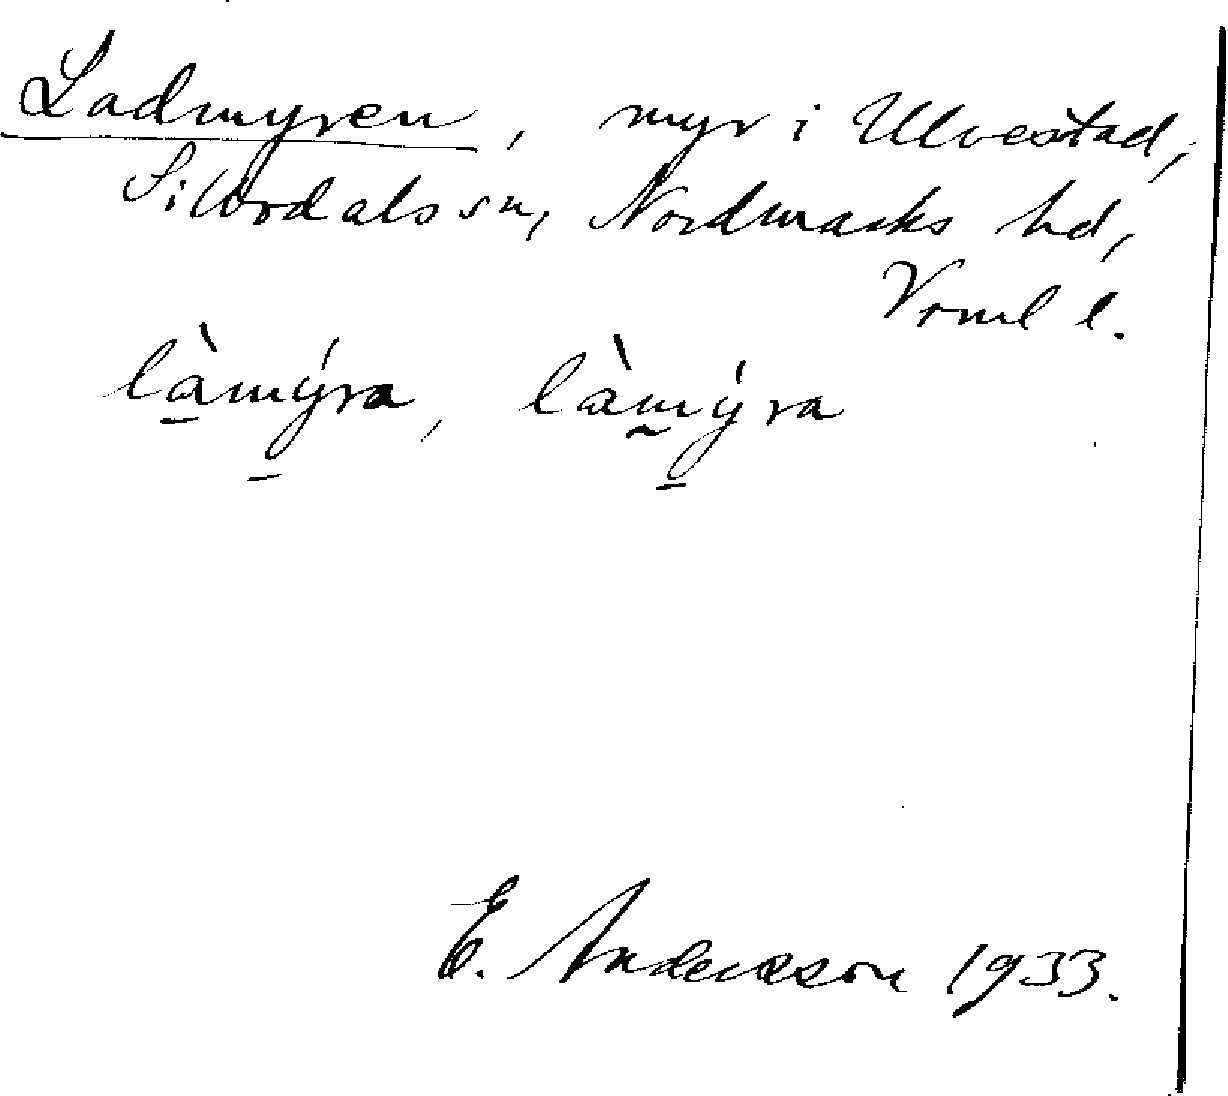 Ladmyren, myr i Ulvestad,
Sillerdals sn, Nordmarks hd,
Vrml l.
làmýra, làmýra
E. Andersson 1933.